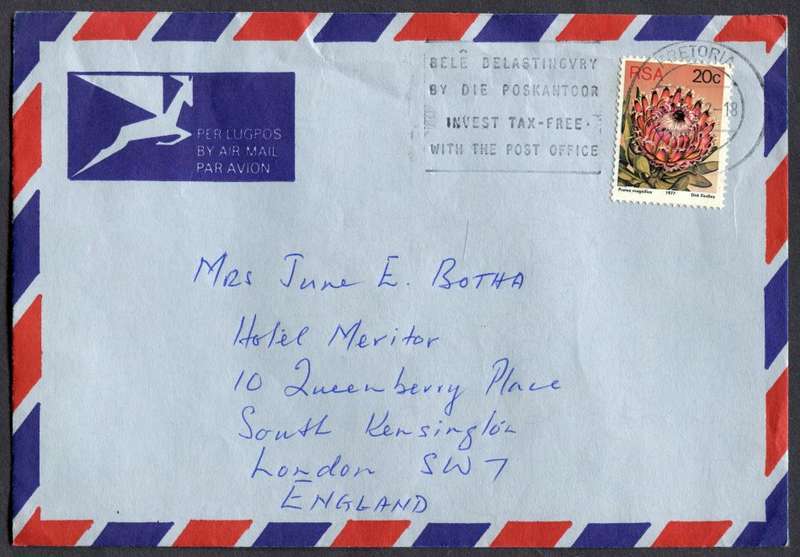 PER LUGPOS
BY AIR MAIL
PAR AVION
BELÊ BELASTINGVRY
BY DIE POSKANTOOR
INVEST TAX-FREE
WITH THE POST OFFICE
PRETORIA
18
RSA 20c
Protea magnifica 1977 Dick Findlay
Mrs June E. BOTHA
Hotel Meritor
10 Queenberry Place
South Kensington
London SW7
ENGLAND